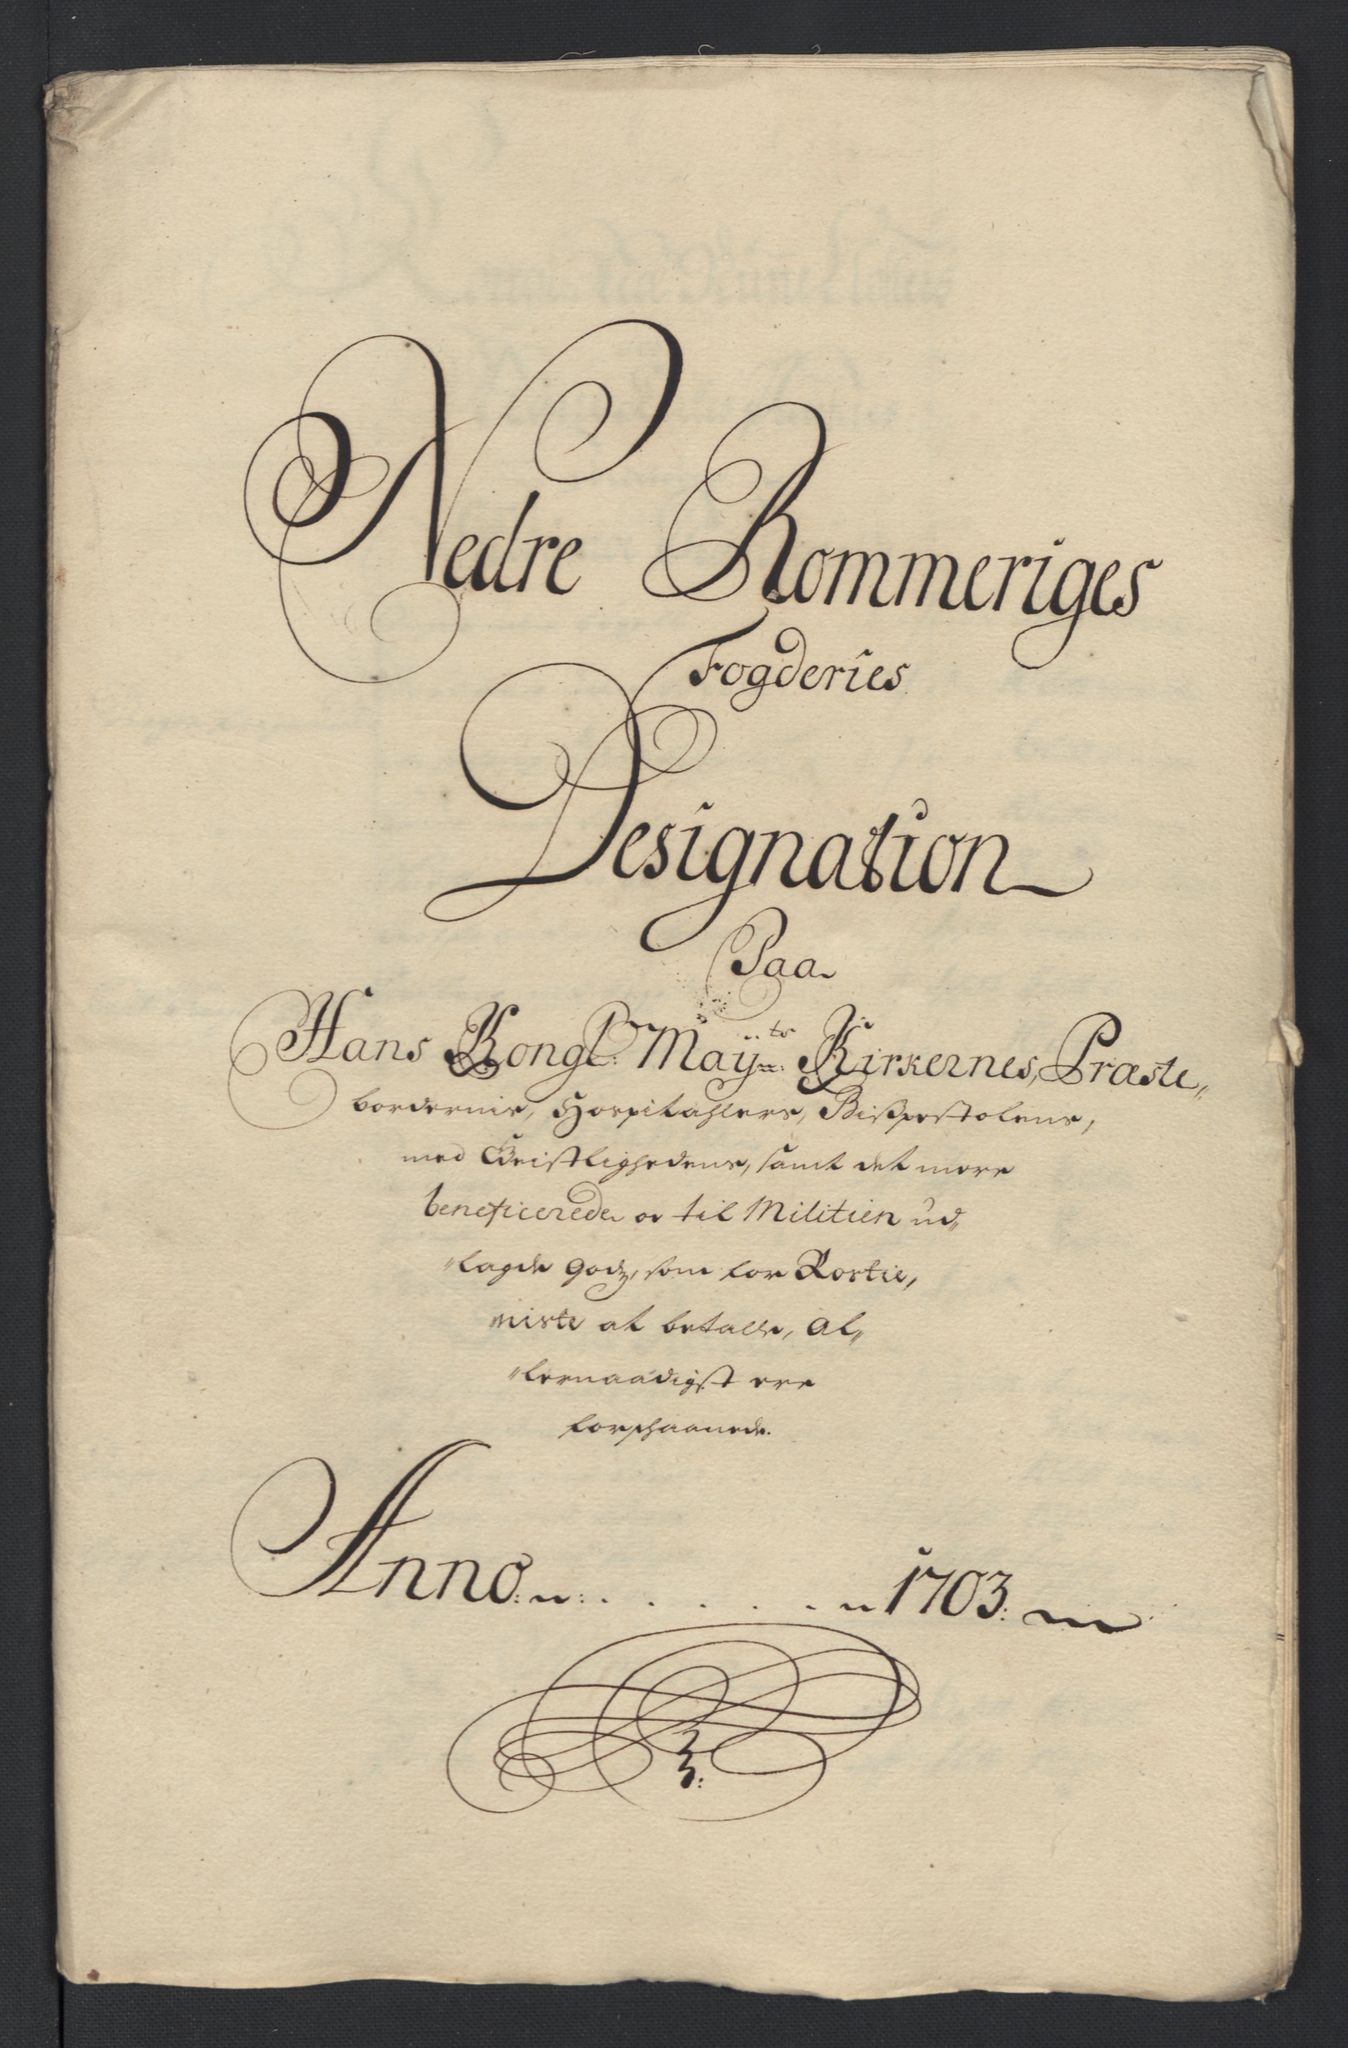 Nedre Rommeriges
Fogderies
Designation
Paa
Hans Kongl: Maÿts: Kirkernes, Præste„
bordernis, Hospitahlers, Bißpestolens,
med Geistlighedens, samt det mere
beneficerede og til Militien ud„
„lagde godz, som for Rostie„
niste at betalle, al„
„lernaadigst ere
forschaanede.
Anno: 1703: